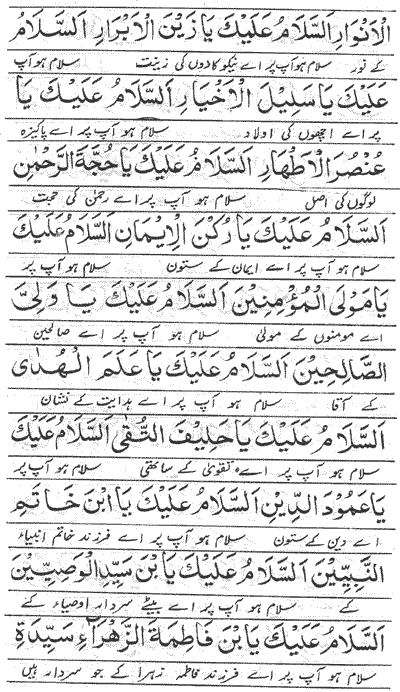 الْاَنْوَارِ اَلسَّلَامُ عَلَيْكَ يَا زَيْنَ الْاَبْرَارِ اَلسَّلَامُ
کے نور سلام ہو آپ پر اے نیکو کاروں کی زینت سلام ہو آپ
عَلَيْكَ يَا سَلِيْلَ الْاَخْيَارِ اَلسَّلَامُ عَلَيْكَ يَا
پر اے اچھوں کی اولاد سلام ہو آپ پر اے پاکیزہ
عُنْصُرَ الْاَطْهَارِ اَلسَّلَامُ عَلَيْكَ يَا حُجَّةَ الرَّحْمٰنِ
لوگوں کی اصل سلام ہو آپ پر اے رحمٰن کی حجت
اَلسَّلَامُ عَلَيْكَ يَا رُكْنَ الْاِيْمَانِ اَلسَّلَامُ عَلَيْكَ
سلام ہو آپ پر اے ایمان کے ستون سلام ہو آپ پر
يَا مَوْلَى الْمُؤْمِنِيْنَ اَلسَّلَامُ عَلَيْكَ يَا وَلِيَّ
اے مومنوں کے مولیٰ سلام ہو آپ پر اے صالحین
الصَّالِحِيْنَ اَلسَّلَامُ عَلَيْكَ يَا عَلَمَ الْهُدٰى
کے آقا سلام ہو آپ پر اے ہدایت کے نشان
اَلسَّلَامُ عَلَيْكَ يَا حَلِيْفَ التُّقٰى اَلسَّلَامُ عَلَيْكَ
سلام ہو آپ پر اے تقویٰ کے ساتھی سلام ہو آپ پر
يَا عَمُوْدَ الدِّيْنِ اَلسَّلَامُ عَلَيْكَ يَا ابْنَ خَاتَمِ
اے دین کے ستون سلام ہو آپ پر اے فرزند خاتم انبیاء
النَّبِيِّيْنَ اَلسَّلَامُ عَلَيْكَ يَا بْنَ سَيِّدِ الْوَصِيِّيْنَ
کے سلام ہو آپ پر اے بیٹے سردار اوصیاء کے
اَلسَّلَامُ عَلَيْكَ يَا بْنَ فَاطِمَةَ الزَّهْرَآءِ سَيِّدَةِ
سلام ہو آپ پر اے فرزند فاطمہ زہرا کے جو سردار ہیں